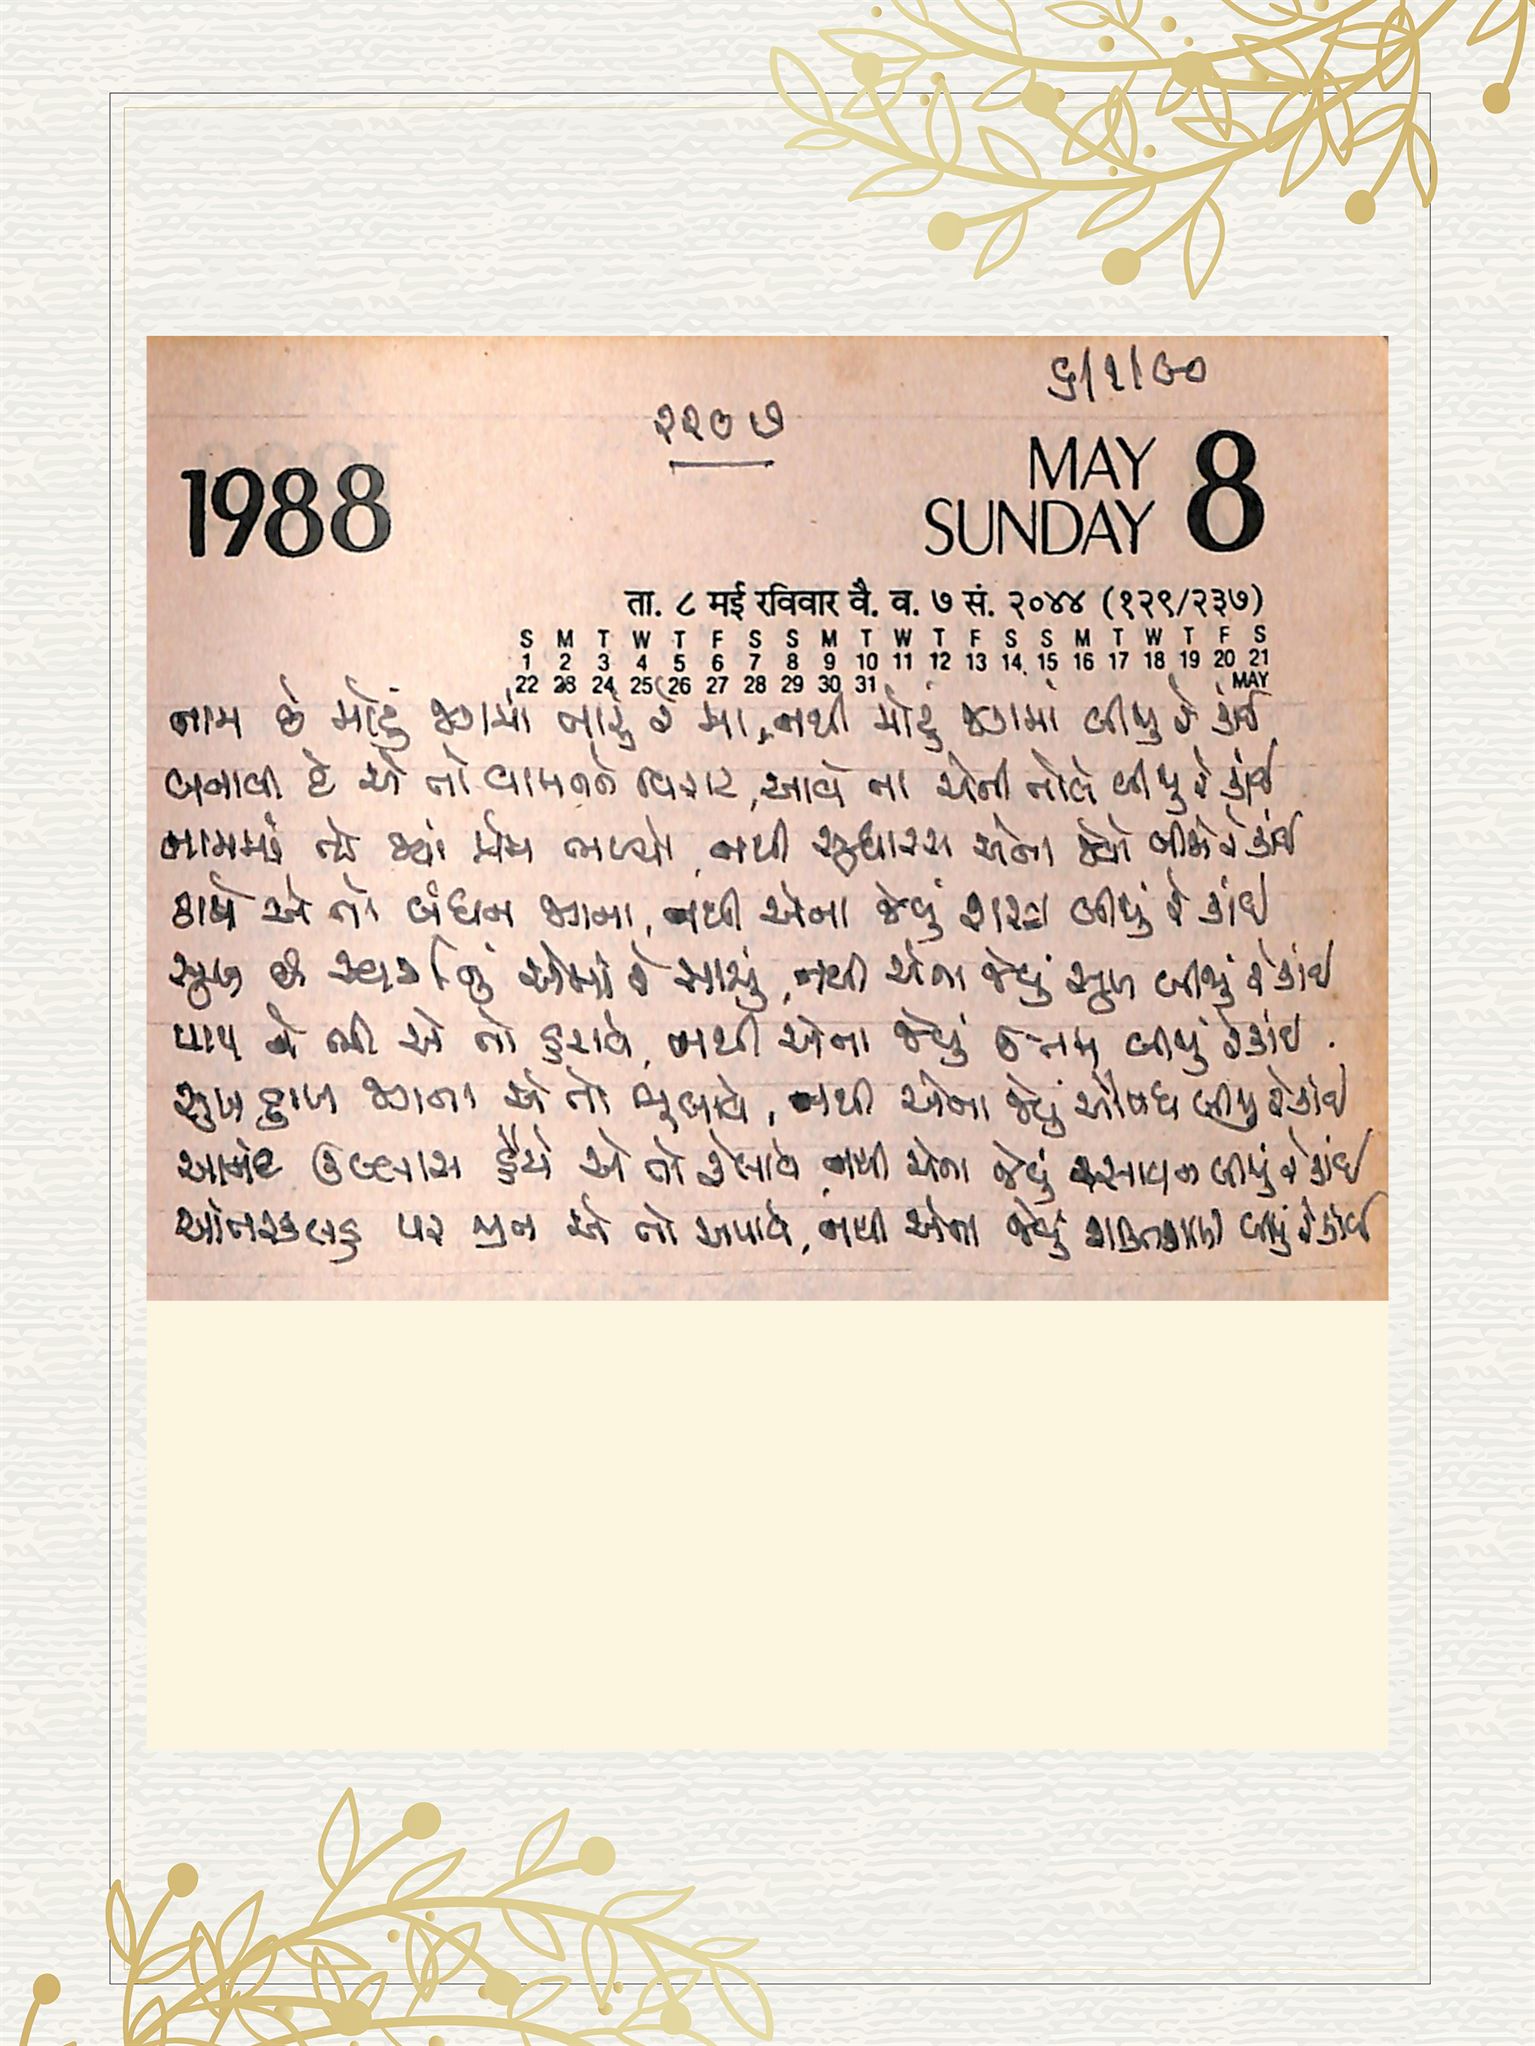 ૬/૧/૯૦
૨૨૦૭
1988
MAY
SUNDAY 8
ता. ८ मई रविवार वै. व. ७ सं. २०४४ (१२९/२३७)
S M T W T F S S M T W T F S S M T W T F S
1 2 3 4 5 6 7 8 9 10 11 12 13 14 15 16 17 18 19 20 21
22 23 24 25 26 27 28 29 30 31 MAY
નામ છે મોટું જગમાં તારું રે મા, નથી મોટું જગમાં બીજું રે કાંઈ
બનાવી દે એ તો વામનને વિરાટ, આવે ના એની તોલે બીજું રે કાંઈ
નામમાં તો જ્યાં પ્રેમ ભળ્યો, નથી સુધારસ એના જેવો બીજો રે કાંઈ
કાપે એ તો બંધન જગના, નથી એના જેવું શસ્ત્ર બીજું રે કાંઈ
સુખ છે સ્વર્ગનું એમાં રે સાચું, નથી એના જેવું સુખ બીજું રે કાંઈ
પાપ ને ભી એ તો હરાવે, નથી એના જેવું ઉત્તમ બીજું રે કાંઈ.
સુખ દુઃખ જગના એ તો ભૂલાવે, નથી એના જેવું ઔષધ બીજું રે કાંઈ
આનંદ ઉલ્લાસ હૈયે એ તો રેલાવે, નથી એના જેવું રસાયન બીજું રે કાંઈ
પર એ તો અપાવે, નથી એના જેવું શક્તિશાળી બીજું રે કાંઈ